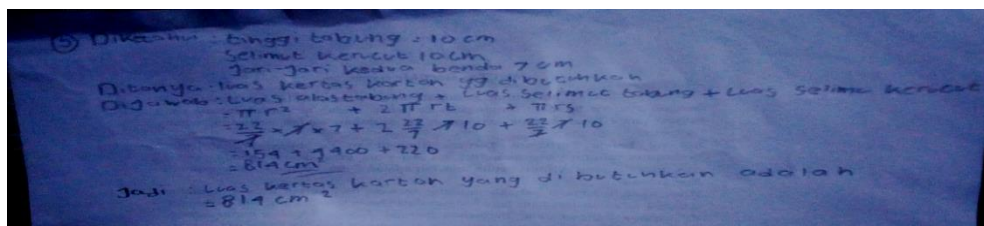 ⑤ Diketahui : tinggi tabung = 10 cm
selimut kerucut 10cm
jari-jari kedua benda 7 cm
Ditanya : luas kertas karton yg dibutuhkan
Dijawab : Luas alas tabung + Luas selimut tabung + Luas selimut kerucut
= πr² + 2 πrt + πrs
= 22/7 × 7 × 7 + 2 22/7 7 10 + 22/7 7 10
= 154 + 4400 + 220
= 814 cm²
Jadi : Luas kertas karton yang di butuhkan adalah
= 814 cm²